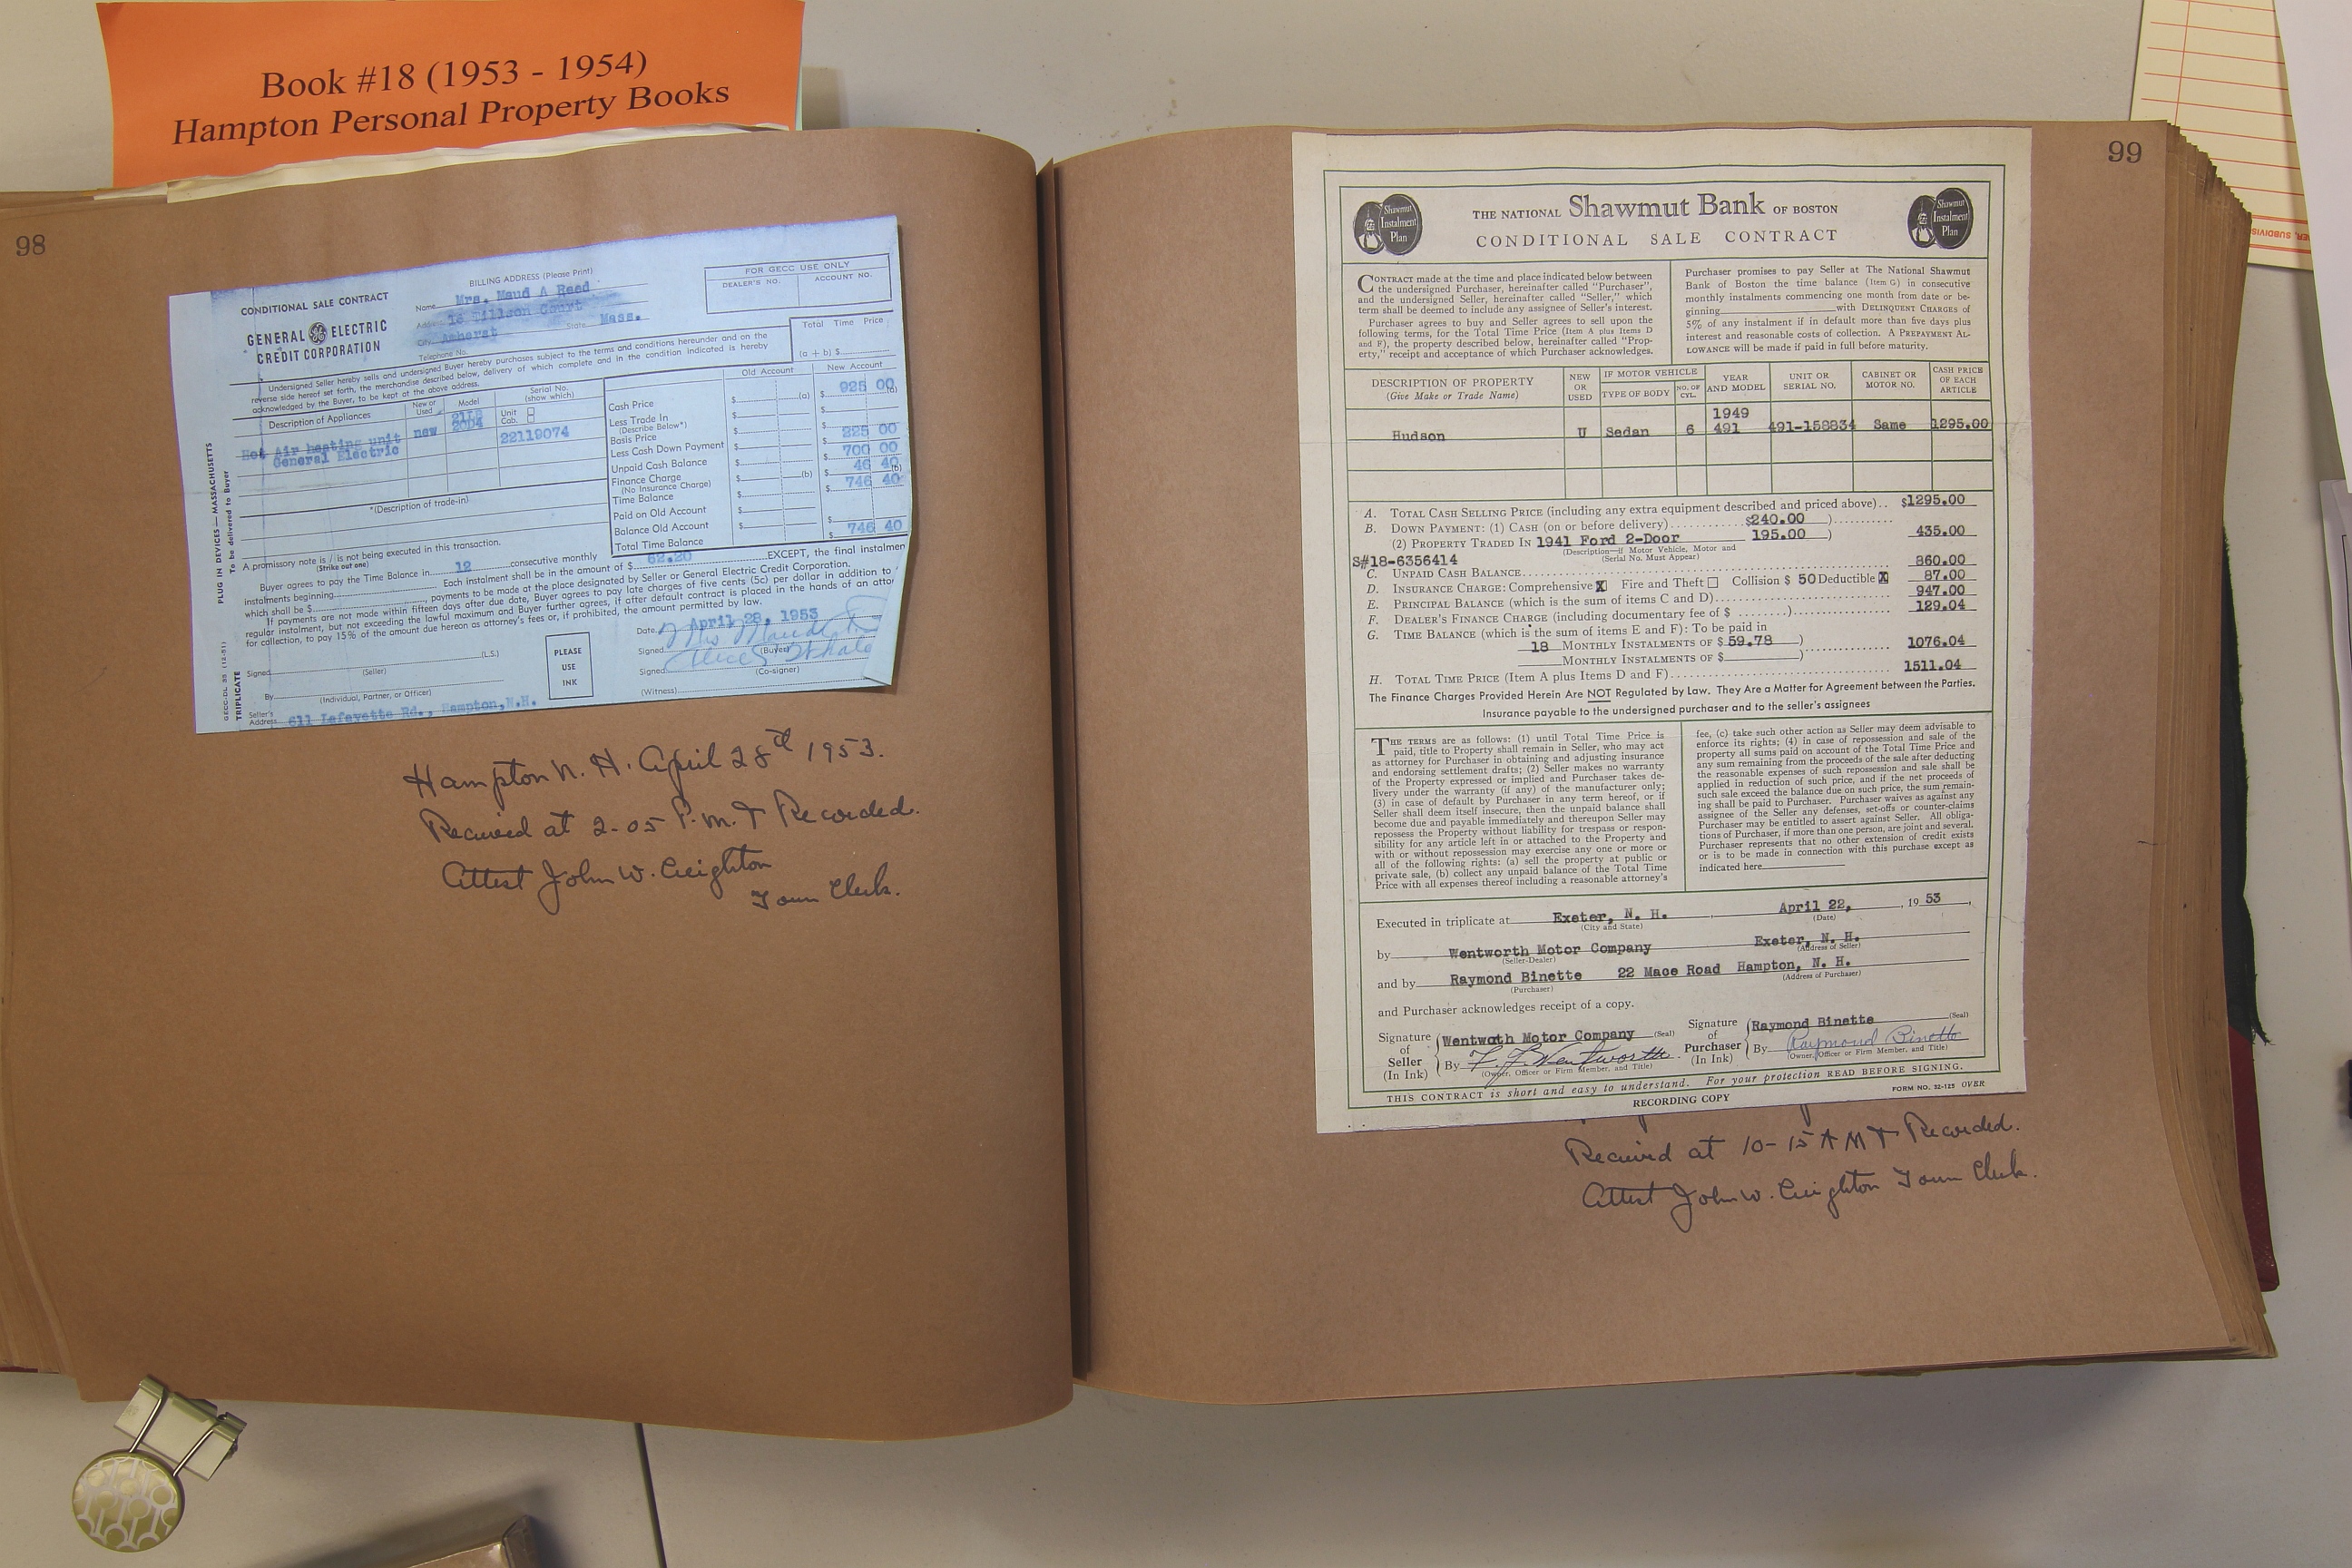 Book #18 (1953 - 1954)
Hampton Personal Property Books
98
CONDITIONAL SALE CONTRACT
GENERAL GE ELECTRIC
CREDIT CORPORATION
BILLING ADDRESS (Please Print)
Name Mrs. Maud A Reed
Address Tillson Court
City Amherst State Mass.
Telephone No.
FOR GECC USE ONLY
DEALER'S NO. ACCOUNT NO.
Total Time Price
(a + b) $
Undersigned Seller hereby sells and undersigned Buyer hereby purchases subject to the terms and conditions hereunder and on the
reverse side hereof set forth, the merchandise described below, delivery of which complete and in the condition indicated is hereby
acknowledged by the Buyer, to be kept at the above address.
Description of Appliances New or Used Model Serial No. (show which)
Unit
Cab.
Hot Air heating unit new 22119074
General Electric
*(Description of trade-in)
Old Account New Account
Cash Price $ (a) $ 925 00 (a)
Less Trade In $ $
(Describe Below*)
Basis Price $ $
Less Cash Down Payment $ 225 00
Unpaid Cash Balance $ 700 00
Finance Charge $ (b) 46 40 (b)
(No Insurance Charge)
Time Balance $ 746 40
Paid on Old Account $
Balance Old Account $
Total Time Balance $ 746 40
A promissory note is / is not being executed in this transaction.
(Strike out one)
Buyer agrees to pay the Time Balance in 12 consecutive monthly
instalments beginning Each instalment shall be in the amount of $ 62.20 EXCEPT, the final instalmen
which shall be $ , payments to be made at the place designated by Seller or General Electric Credit Corporation.
If payments are not made within fifteen days after due date, Buyer agrees to pay late charges of five cents (5c) per dollar in addition to
regular instalment, but not exceeding the lawful maximum and Buyer further agrees, if after default contract is placed in the hands of an attor
for collection, to pay 15% of the amount due hereon as attorney's fees or, if prohibited, the amount permitted by law.
Date April 28, 1953
Signed (L.S.)
(Seller)
By
(Individual, Partner, or Officer)
Seller's
Address 611 Lafayette Rd., Hampton, N.H.
PLEASE
USE
INK
Signed Mrs Maud
(Buyer)
Signed
(Co-signer)
(Witness)
PLUG IN DEVICES — MASSACHUSETTS
To be delivered to Buyer
TRIPLICATE
Hampton N. H. April 28th 1953.
Received at 2-05 P.M. & Recorded.
Attest John W. Creighton
Town Clerk.
99
Shawmut
Instalment
Plan
THE NATIONAL Shawmut Bank OF BOSTON
CONDITIONAL SALE CONTRACT
Shawmut
Instalment
Plan
CONTRACT made at the time and place indicated below between
the undersigned Purchaser, hereinafter called "Purchaser",
and the undersigned Seller, hereinafter called "Seller," which
term shall be deemed to include any assignee of Seller's interest.
Purchaser agrees to buy and Seller agrees to sell upon the
following terms, for the Total Time Price (Item A plus Items D
and F), the property described below, hereinafter called "Prop-
erty," receipt and acceptance of which Purchaser acknowledges.
Purchaser promises to pay Seller at The National Shawmut
Bank of Boston the time balance (Item G) in consecutive
monthly instalments commencing one month from date or be-
ginning with DELINQUENT CHARGES of
5% of any instalment if in default more than five days plus
interest and reasonable costs of collection. A PREPAYMENT AL-
LOWANCE will be made if paid in full before maturity.
DESCRIPTION OF PROPERTY
(Give Make or Trade Name)
NEW OR USED
IF MOTOR VEHICLE
TYPE OF BODY NO. OF CYL.
YEAR AND MODEL
UNIT OR SERIAL NO.
CABINET OR MOTOR NO.
CASH PRICE OF EACH ARTICLE
1949
Hudson U Sedan 6 491 491-158834 Same 1295.00
A. TOTAL CASH SELLING PRICE (including any extra equipment described and priced above).. $1295.00
B. DOWN PAYMENT: (1) CASH (on or before delivery) $240.00 )
(2) PROPERTY TRADED IN 1941 Ford 2-Door 195.00 ) 435.00
(Description—if Motor Vehicle, Motor and
S#18-6356414 (Serial No. Must Appear)
C. UNPAID CASH BALANCE 860.00
D. INSURANCE CHARGE: Comprehensive X Fire and Theft Collision $ 50 Deductible X 87.00
E. PRINCIPAL BALANCE (which is the sum of items C and D) 947.00
F. DEALER'S FINANCE CHARGE (including documentary fee of $ ) 129.04
G. TIME BALANCE (which is the sum of items E and F): To be paid in
18 MONTHLY INSTALMENTS OF $ 59.78 ) 1076.04
MONTHLY INSTALMENTS OF $ )
H. TOTAL TIME PRICE (Item A plus Items D and F) 1511.04
The Finance Charges Provided Herein Are NOT Regulated by Law. They Are a Matter for Agreement between the Parties.
Insurance payable to the undersigned purchaser and to the seller's assignees
THE TERMS are as follows: (1) until Total Time Price is
paid, title to Property shall remain in Seller, who may act
as attorney for Purchaser in obtaining and adjusting insurance
and endorsing settlement drafts; (2) Seller makes no warranty
of the Property expressed or implied and Purchaser takes de-
livery under the warranty (if any) of the manufacturer only;
(3) in case of default by Purchaser in any term hereof, or if
Seller shall deem itself insecure, then the unpaid balance shall
become due and payable immediately and thereupon Seller may
repossess the Property without liability for trespass or respon-
sibility for any article left in or attached to the Property and
with or without repossession may exercise any one or more or
all of the following rights: (a) sell the property at public or
private sale, (b) collect any unpaid balance of the Total Time
Price with all expenses thereof including a reasonable attorney's
fee, (c) take such other action as Seller may deem advisable to
enforce its rights; (4) in case of repossession and sale of the
property all sums paid on account of the Total Time Price and
any sum remaining from the proceeds of the sale after deducting
the reasonable expenses of such repossession and sale shall be
applied in reduction of such price, and if the net proceeds of
such sale exceed the balance due on such price, the sum remain-
ing shall be paid to Purchaser. Purchaser waives as against any
assignee of the Seller any defenses, set-offs or counter-claims
Purchaser may be entitled to assert against Seller. All obliga-
tions of Purchaser, if more than one person, are joint and several.
Purchaser represents that no other extension of credit exists
or is to be made in connection with this purchase except as
indicated here
Executed in triplicate at Exeter, N. H. , April 22, , 19 53,
(City and State) (Date)
by Wentworth Motor Company Exeter, N. H.
(Seller-Dealer) (Address of Seller)
and by Raymond Binette 22 Mace Road Hampton, N. H.
(Purchaser) (Address of Purchaser)
and Purchaser acknowledges receipt of a copy.
Signature of Seller (In Ink) Wentwoth Motor Company (Seal)
By F. J. Wentworth
(Owner, Officer or Firm Member, and Title)
Signature of Purchaser (In Ink) Raymond Binette (Seal)
By Raymond Binette
(Owner, Officer or Firm Member, and Title)
THIS CONTRACT is short and easy to understand. For your protection READ BEFORE SIGNING.
RECORDING COPY
FORM NO. 32-125 OVER
Received at 10-15 A M & Recorded.
Attest John W. Creighton Town Clerk.